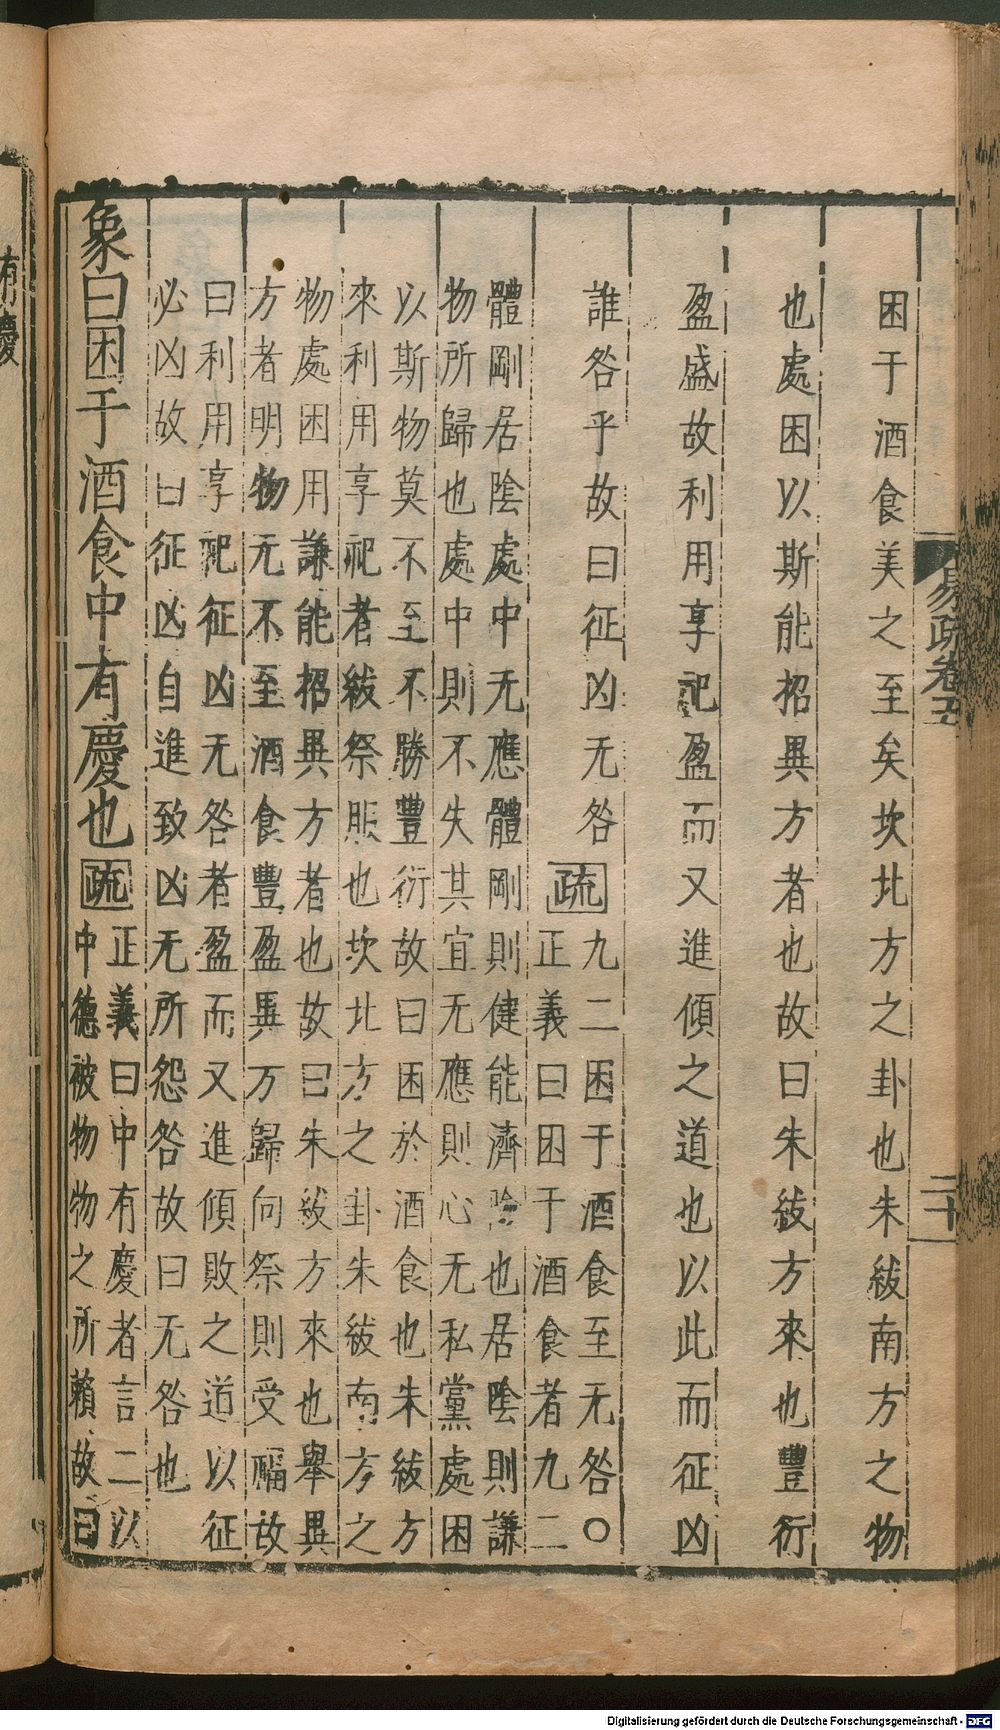 困于酒食美之至矣坎北方之卦也朱紱南方之物
也處困以斯能招異方者也故曰朱紱方來也豐衍
盈盛故利用享祀盈而又進傾之道也以此而征凶
誰咎乎故曰征凶无咎疏九二困于酒食至无咎○
正義曰困于酒食者九二
體剛居陰處中无應體剛則健能濟險也居陰則謙
物所歸也處中則不失其宜无應則心无私黨處困
以斯物莫不至不勝豐衍故曰困於酒食也朱紱方
來利用享祀者紱祭服也坎北方之卦朱紱南方之
物處困用謙能招異方者也故曰朱紱方來也舉異
方者明物无不至酒食豐盈異方歸向祭則受福故
曰利用享祀征凶无咎者盈而又進傾敗之道以征
必凶故曰征凶自進致凶无所怨咎故曰无咎也
象曰困于酒食中有慶也疏正義曰中有慶者言二以
中德被物物之所賴故曰
有慶
易疏卷五
二十
Digitalisierung gefördert durch die Deutsche Forschungsgemeinschaft - DFG